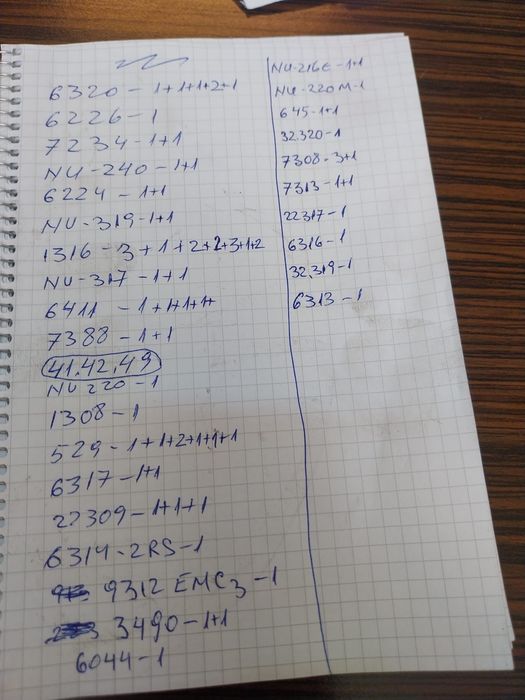 6320-1+1+1+2+1
6226-1
7234-1+1
NU-240-1+1
6224-1+1
NU-319-1+1
1316-3+1+2+2+3+1+2
NU-317-1+1
6411-1+1+1+1+
7388-1+1
41.42.49
NU 220-1
1308-1
529-1+1+2+1+1+1
6317-1+1
22309-1+1+1
6314-2RS-1
9312 EMC3-1
3490-1+1
6044-1
NU-216E-1+1
NU-220M-1
645-1+1
32.320-1
7308-3+1
7313-1+1
22317-1
6316-1
32.319-1
6313-1